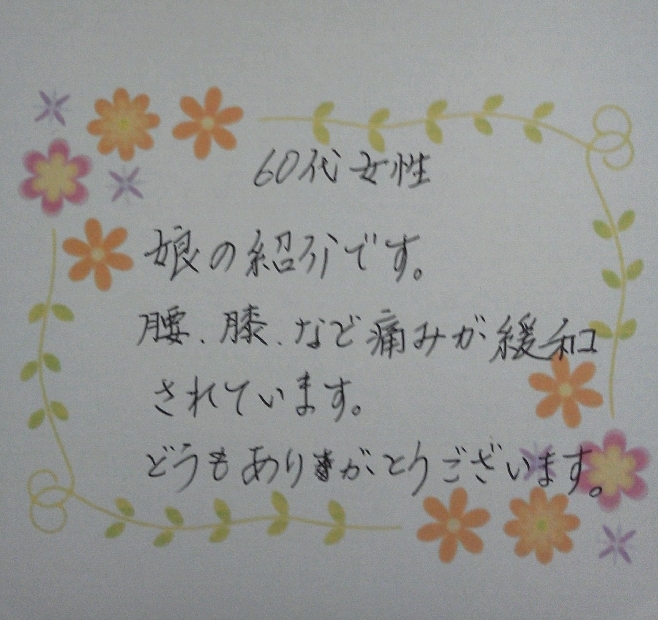 60代女性
娘の紹介です。
腰、膝、など痛みが緩和
されています。
どうもありがとうございます。